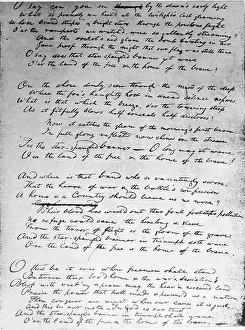 O say can you see by the dawn's early light
What so proudly we hail'd at the twilight's last gleaming,
Whose broad stripes & bright stars through the perilous fight
O'er the ramparts we watch'd, were so gallantly streaming?
And the rocket's red glare, the bomb bursting in air,
Gave proof through the night that our flag was still there
O say does that star-spangled banner yet wave
O'er the land of the free & the home of the brave?
On the shore dimly seen through the mists of the deep,
Where the foe's haughty host in dread silence reposes,
What is that which the breeze, o'er the towering steep,
As it fitfully blows, half conceals, half discloses?
Now it catches the gleam of the morning's first beam,
In full glory reflected now shines in the stream,
'Tis the star-spangled banner — O long may it wave
O'er the land of the free & the home of the brave!
And where is that band who so vauntingly swore,
That the havoc of war & the battle's confusion
A home & a Country should leave us no more?
Their blood has wash'd out their foul footstep's pollution
No refuge could save the hireling & slave
From the terror of flight or the gloom of the grave,
And the star-spangled banner in triumph doth wave
O'er the land of the free & the home of the brave.
O thus be it ever when freemen shall stand
Between their lov'd home & the war's desolation!
Blest with vict'ry & peace may the heav'n rescued land
Praise the power that hath made & preserv'd us a nation!
Then conquer we must, when our cause it is just,
And this be our motto — In God is our trust
And the star-spangled banner in triumph shall wave
O'er the land of the free & the home of the brave. —